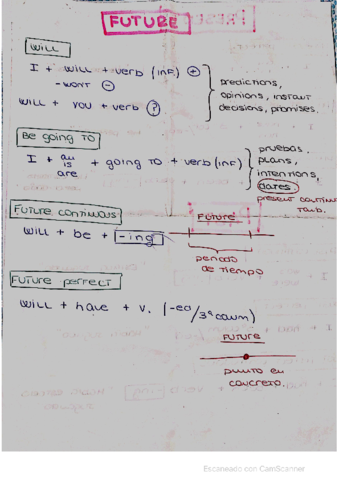 FUTURE
WILL
I + will + verb (INF) +
- WON'T -
will + you + verb ?
predictions,
opinions, instant
decisions, promises.
Be going TO
I + am
is
are + going TO + verb (INF)
pruebas,
plans,
intentions,
dates.
present continu
tamb.
Future continuous
will + be + -ing
FUTURE
periodo
de tiempo
Future perfect
will + have + v. (-ed/3ª colum)
FUTURE
punto en
concreto.
Escaneado con CamScanner